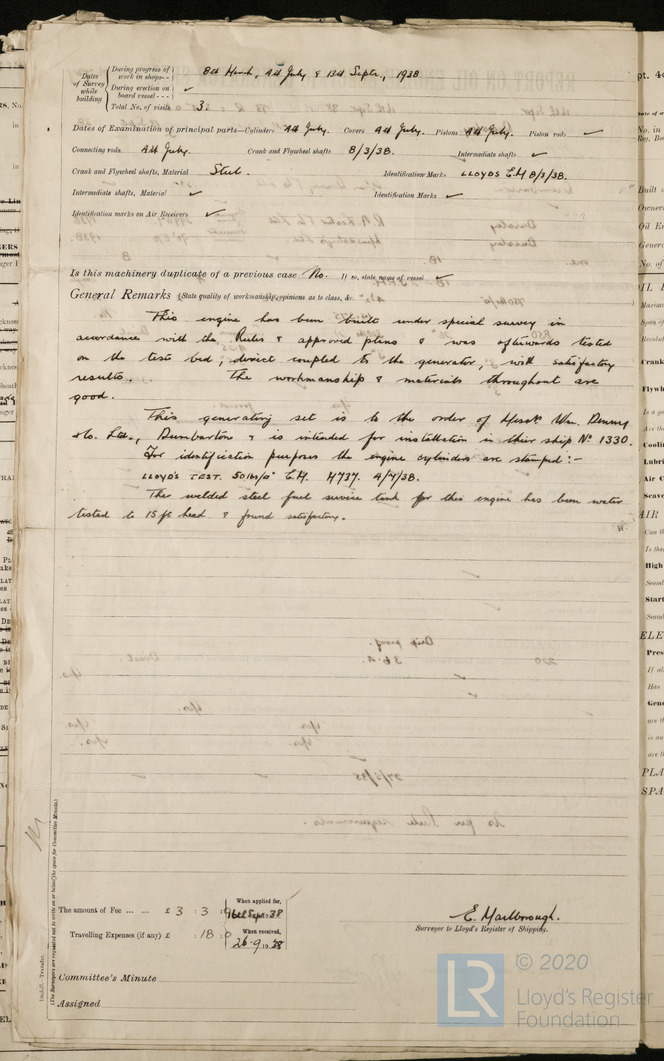 Dates of Survey while building
During progress of work in shops-- 8th March, 4th July & 13th Septr., 1938
During erection on board vessel--- ✓
Total No. of visits 3.
Dates of Examination of principal parts—Cylinders 4th July. Covers 4th July. Pistons 4th July. Piston rods ✓
Connecting rods 4th July. Crank and Flywheel shafts 8/3/38. Intermediate shafts ✓
Crank and Flywheel shafts, Material Steel. Identification Marks LLOYDS E.H 8/3/38.
Intermediate shafts, Material ✓ Identification Marks ✓
Identification marks on Air Receivers ✓
Is this machinery duplicate of a previous case No. If so, state name of vessel ✓
General Remarks (State quality of workmanship, opinions as to class, &c.
This engine has been built under special survey in
accordance with the Rules & approved plans & was afterwards tested
on the test bed, direct coupled to the generator, with satisfactory
results. The workmanship & materials throughout are
good.
This generating set is to the order of Messrs Wm. Denny
& Co. Ltd., Dumbarton & is intended for installation in their ship No 1330.
For identification purposes the engine cylinders are stamped:-
LLOYD'S TEST. 50 lbs/□" E.H. H737. 4/7/38.
The welded steel fuel service tank for this engine has been water
tested to 15 ft head & found satisfactory.
The amount of Fee ... ... £ 3 : 3 : 0
When applied for, 16th Sept 1938
Travelling Expenses (if any) £ : 18 : 0
When received, 26.9.1938
E. Marlborough.
Surveyor to Lloyd's Register of Shipping.
Committee's Minute
Assigned
(The Surveyors are requested not to write on or below the space for Committee Minute.)
LR
© 2020
Lloyd's Register
Foundation